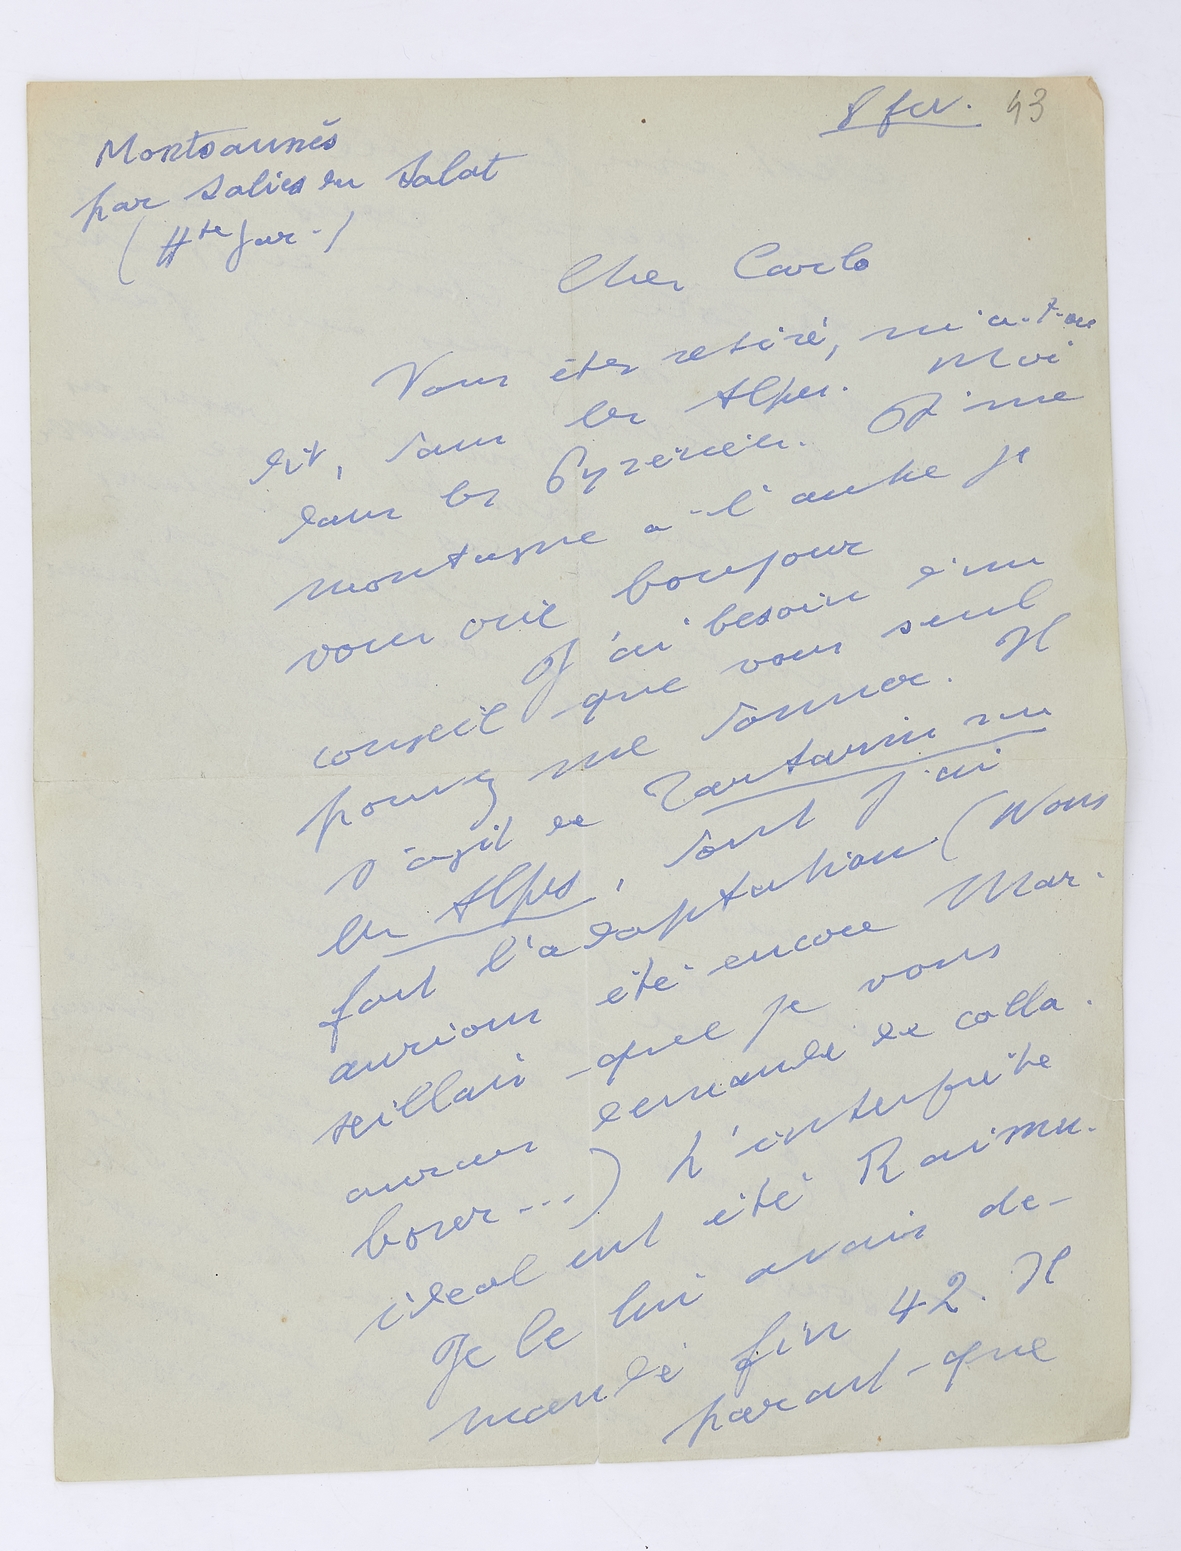 8 fev. 43
Montsaunès
par Salies du Salat
(Hte Gar.)
Cher Carlo
Vous êtes retiré, m'a-t-on
dit, dans les Alpes. Moi
dans les Pyrénées. D'une
montagne à l'autre je
vous crie bonjour
J'ai besoin d'un
conseil que vous seul
pouvez me donner. Il
s'agit de Tartarin sur
les Alpes, dont j'ai
fait l'adaptation. (Nous
aurions été encore Mar-
seillais que je vous
aurais demandé de colla-
borer...) L'interprète
idéal eut été Raimu.
Je le lui avais de-
mandé fin 42. Il
parait que